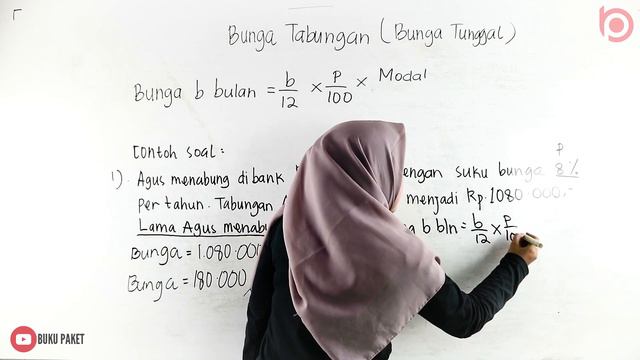 Bunga Tabungan (Bunga Tunggal)
Bunga b bulan = b/12 × P/100 × Modal
Contoh soal:
P
1). Agus menabung di bank engan suku bunga 8%
per tahun. Tabungan menjadi Rp.1080.000,-
Lama Agus menabu
b bln = b/12 × P/10
Bunga = 1.080.000
Bunga = 180.000
BUKU PAKET